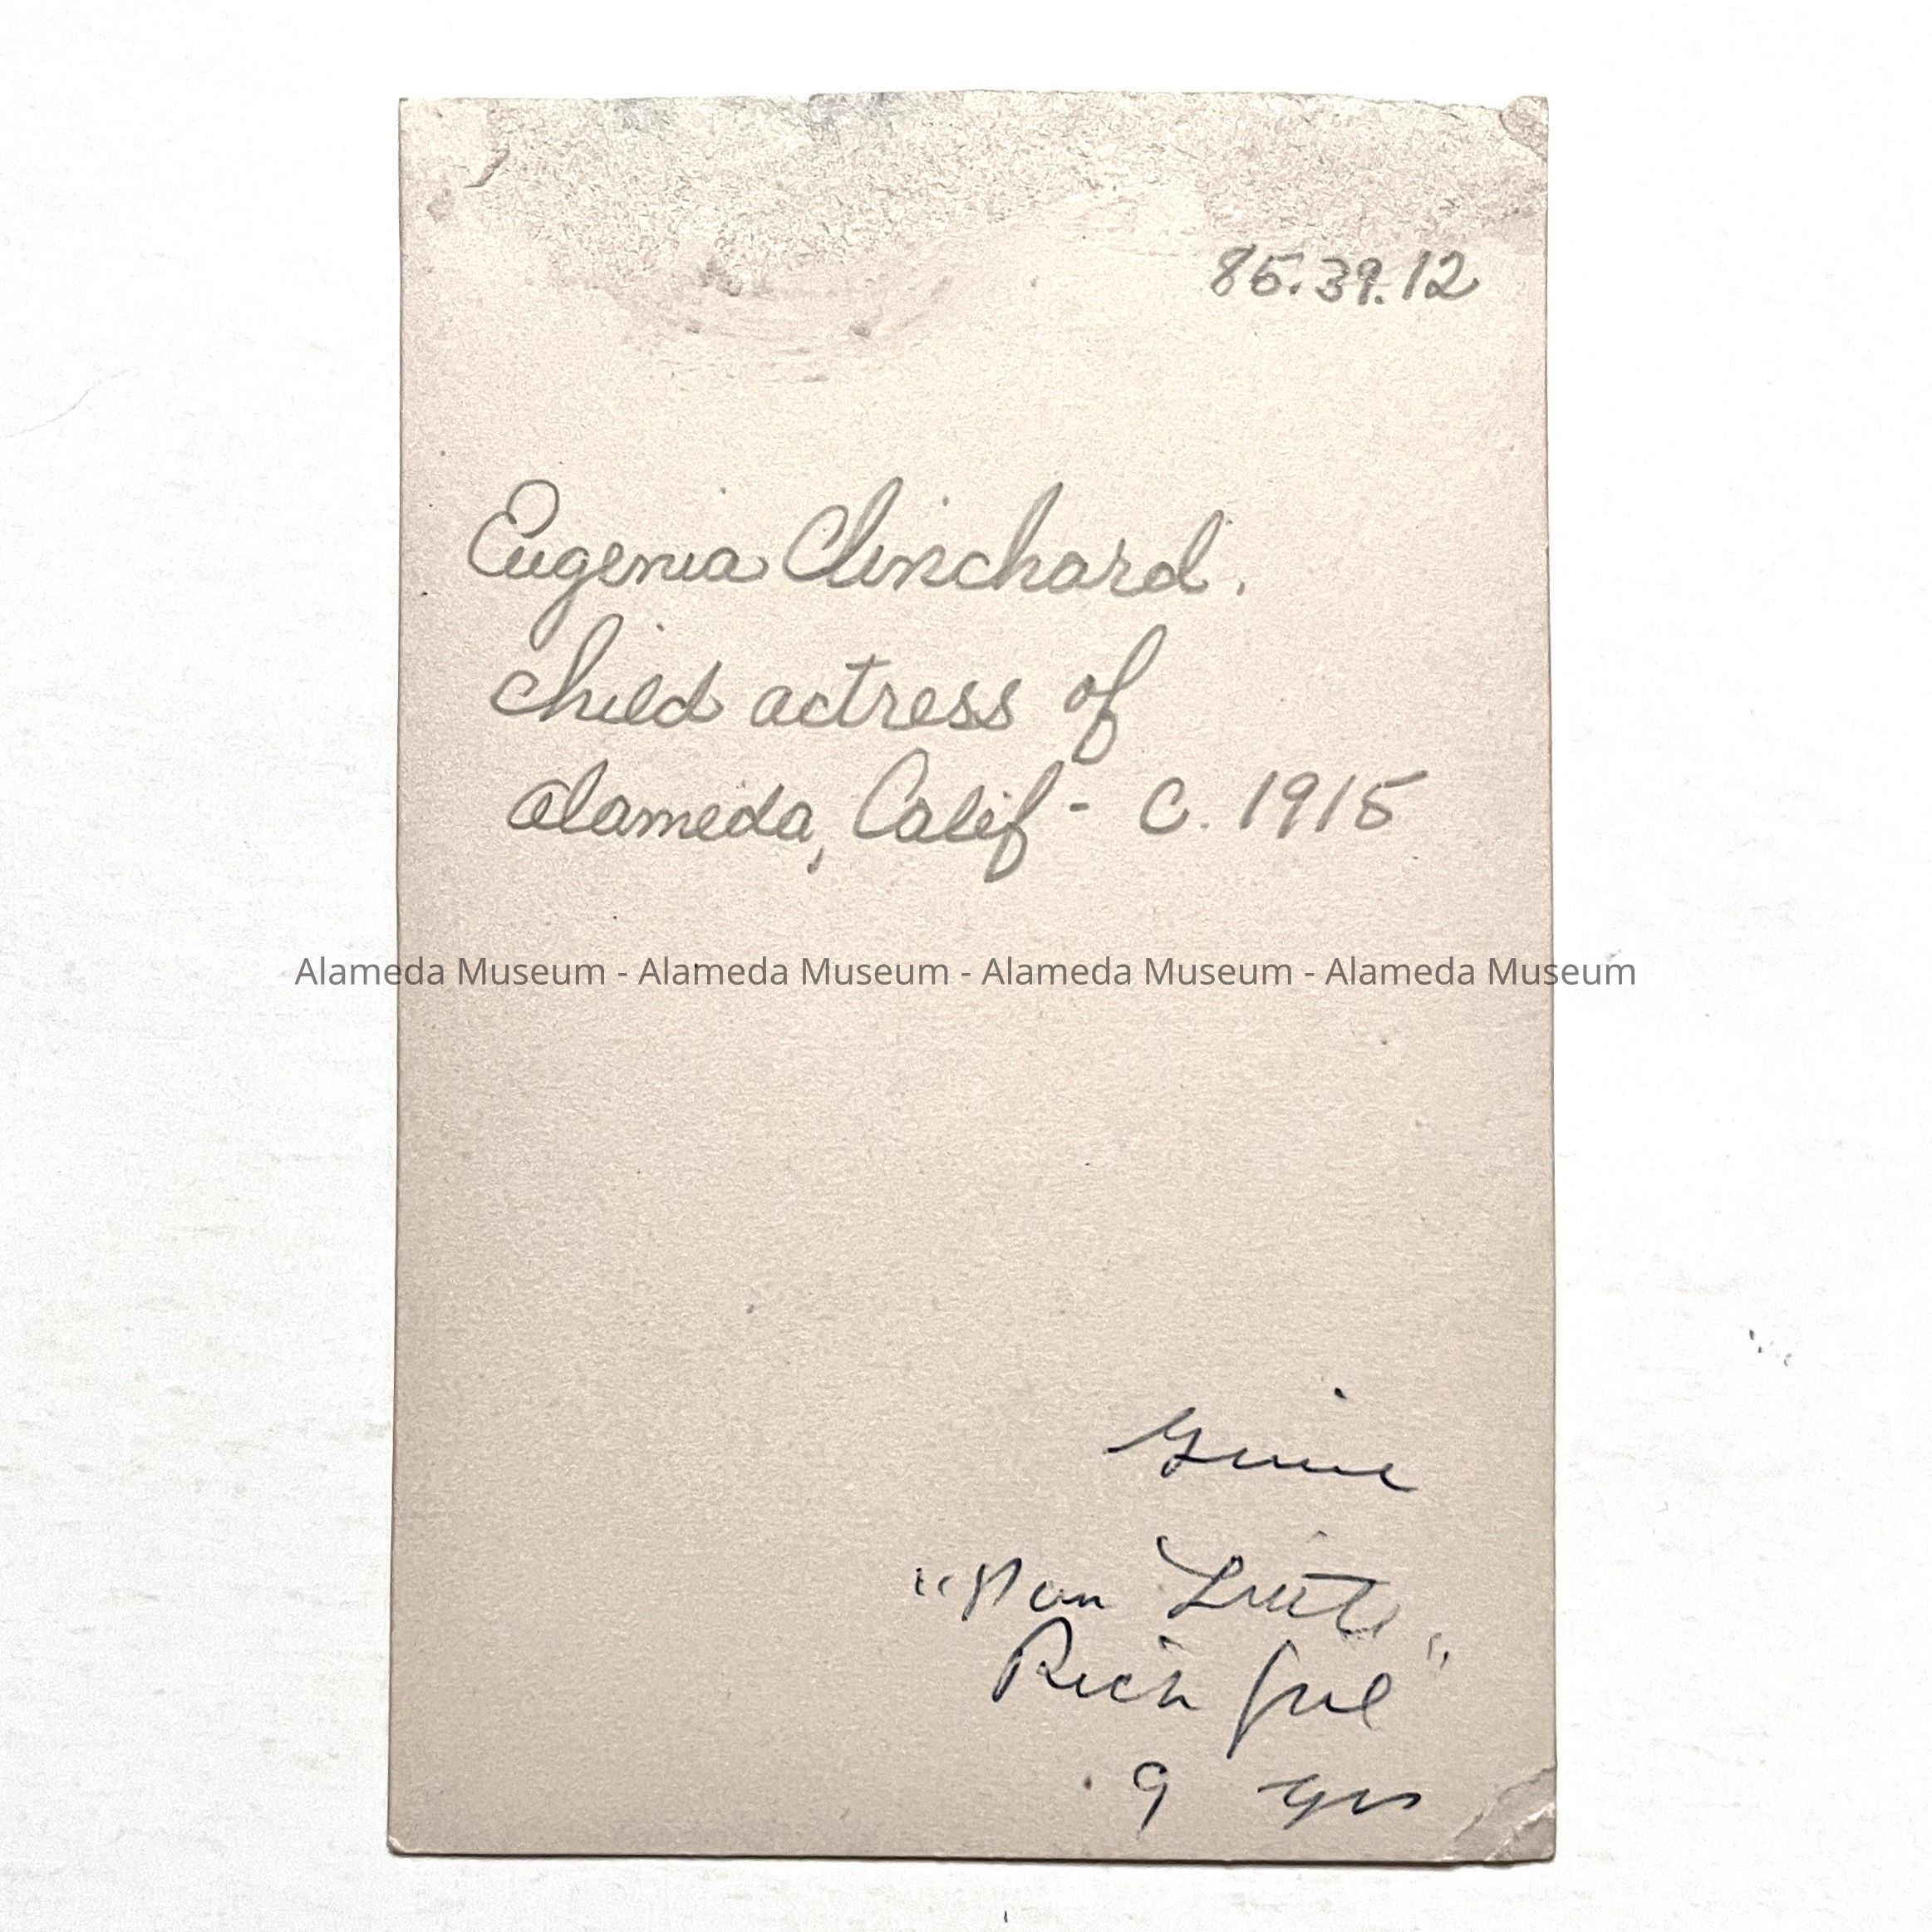 85.39.12
Eugenia Clinchard.
child actress of
Alameda, Calif - C. 1915
Alameda Museum - Alameda Museum - Alameda Museum - Alameda Museum
Genie
Rich Girl"
9 yrs